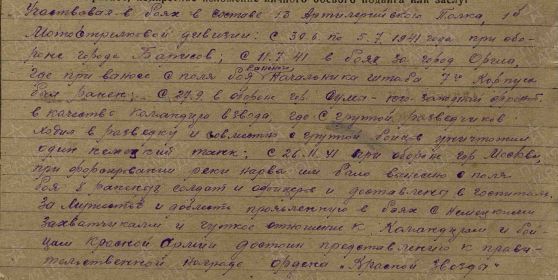 Участвовал в боях в составе 13 Артиллерийского Полка, 1й
Мотострелковой дивизии: с 30.6 по 5.7.1941 года при обо-
роне города Борисов; с 11.7.41 в боях за город Орша,
где при выносе с поля боя раненого Начальника штаба 7го Корпуса
был ранен; с 27.9. в обороне гор. Сумы - юго-западный фронт,
в качестве командира взвода, где с группой разведчиков
ходил в разведку и совместно с группой бойцов уничтожил
один немецкий танк; с 26.11.41 при обороне гор Москвы,
при форсировании реки Нарва им было вынесено с поля
боя 8 раненых солдат и офицеров и доставлено в госпиталь.
За мужество и доблесть проявленную в боях с немецкими
захватчиками и чуткое отношение к командирам и бой-
цам красной армии достоин представлению к прави-
тельственной награде ордена „Красной Звезда"